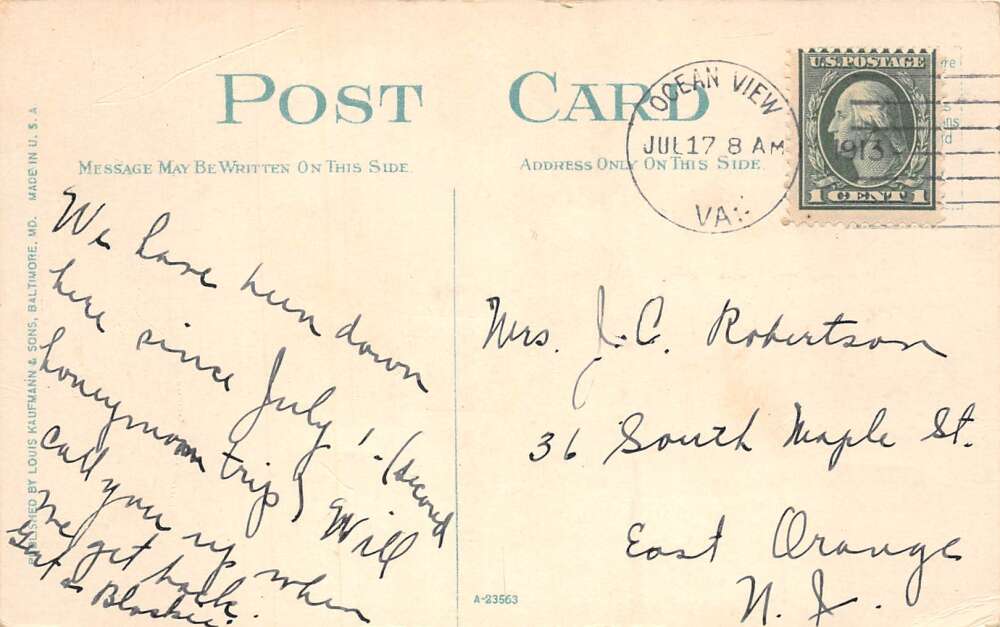 POST CARD
MESSAGE MAY BE WRITTEN ON THIS SIDE.
ADDRESS ONLY ON THIS SIDE.
PUBLISHED BY LOUIS KAUFMANN & SONS, BALTIMORE, MD. MADE IN U. S. A
OCEAN VIEW
JUL 17 8 AM
1913
VA.
U.S. POSTAGE
1 CENT 1
We have been down
here since July 1. (second
honeymoon trip) Will
call you up when
we get back.
Gert &
Mrs. J. C. Robertson
36 South Maple St.
East Orange
N. J.
A-23563